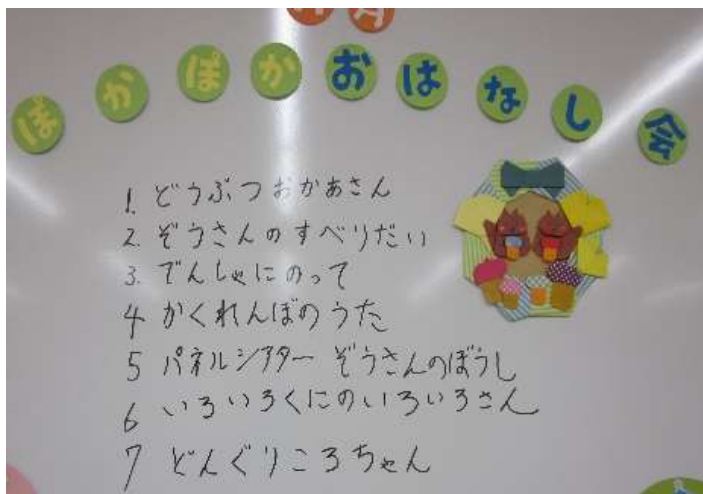 月
ぽかぽかおはなし会
1. どうぶつおかあさん
2. ぞうさんのすべりだい
3. でんしゃにのって
4 かくれんぼのうた
5 パネルシアター ぞうさんのぼうし
6 いろいろくにのいろいろさん
7 どんぐりころちゃん